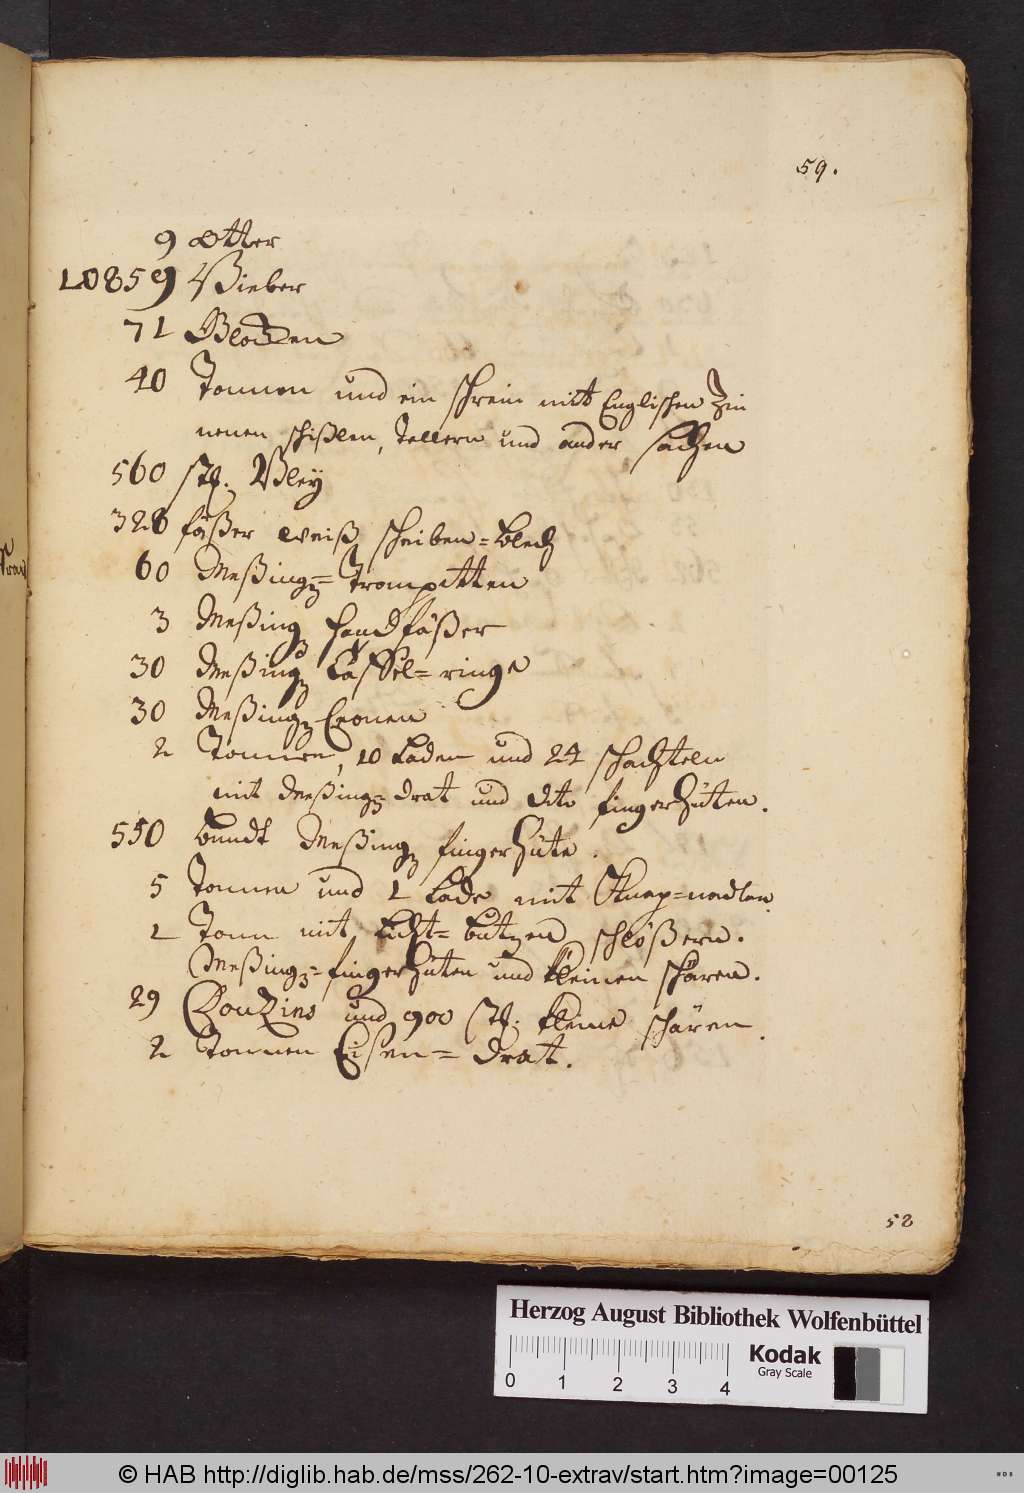 59.
9 Otter
10859 Bieber
71 Glocken
40 Tonnen und ein schrein mitt Englischen Zin
nenen schißlen, Tellern und ander sachen
560 stk. Bley
328 fäßer weiß scheiben=blech
60 Meßing=Trompetten
3 Meßing handfäßer
30 Meßing Kessel=ringe
30 Meßing Cronen
2 Tonnen, 10 Laden und 24 schachteln
mit Meßing=drat und dito fingerhüten.
550 bundt Meßing fingerhüte.
5 Tonnen und 1 Lade mit Knep=nadlen
1 Tonn mit Licht=butzen schlößern.
Meßing=fingerhüten und kleinen schären.
29 Douzins und 900 stk. kleine schären.
2 Tonnen Eisen=drat.
58
Herzog August Bibliothek Wolfenbüttel
0 1 2 3 4
Kodak
Gray Scale
© HAB http://diglib.hab.de/mss/262-10-extrav/start.htm?image=00125